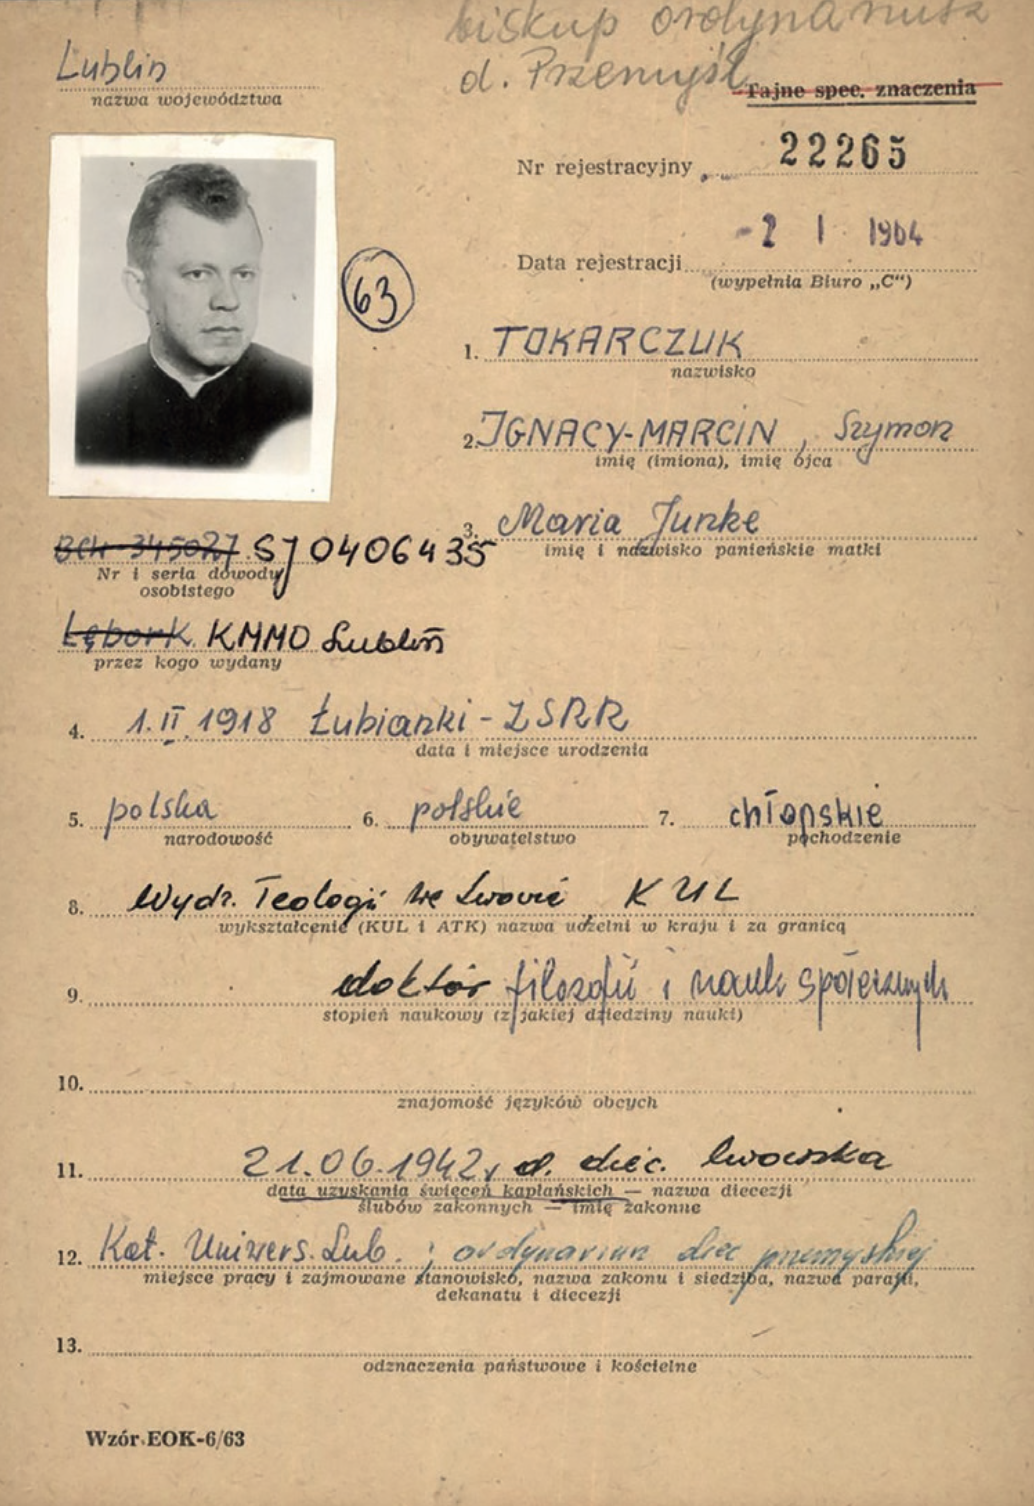 biskup ordynariusz
d. Przemyśl
Lublin
nazwa województwa
Tajne spec. znaczenia
Nr rejestracyjny 22265
-2 I 1964
Data rejestracji
(wypełnia Biuro „C“)
63
1. TOKARCZUK
nazwisko
2. IGNACY-MARCIN, Szymon
imię (imiona), imię ojca
3. Maria Junke
imię i nazwisko panieńskie matki
BCH 345027 SJ 0406435
Nr i seria dowodu
osobistego
Lębork KMMO Lublin
przez kogo wydany
4. 1.II.1918 Łubianki - ZSRR
data i miejsce urodzenia
5. polska 6. polskie 7. chłopskie
narodowość obywatelstwo pochodzenie
8. Wydz. Teologii we Lwowie KUL
wykształcenie (KUL i ATK) nazwa uczelni w kraju i za granicą
9. doktór filozofii i nauk społecznych
stopień naukowy (z jakiej dziedziny nauki)
10.
znajomość języków obcych
11. 21.06.1942, d. diec. lwowska
data uzyskania święceń kapłańskich — nazwa diecezji
ślubów zakonnych — imię zakonne
12. Kat. Uniwers. Lub. ; ordynariusz diec przemyskiej
miejsce pracy i zajmowane stanowisko, nazwa zakonu i siedziba, nazwa parafii,
dekanatu i diecezji
13.
odznaczenia państwowe i kościelne
Wzór EOK-6/63